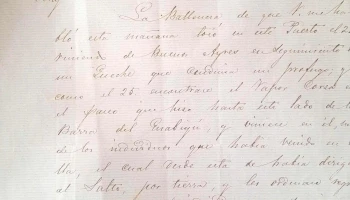 La Ballenera de que V. me ha
bló esta mañana tocó en este Puerto el 2
viniendo de Buenos Ayres en seguimiento
un que conducia un profugo, y
como el 25 encontrase el Vapor Corso
el franco que hiso hasta este lado de l
Barra del y viniese en él, un
de los individuos que habia venido en
lla, el cual desde esta de habia dirigi
al Salto, por tierra, y les ordenara regr